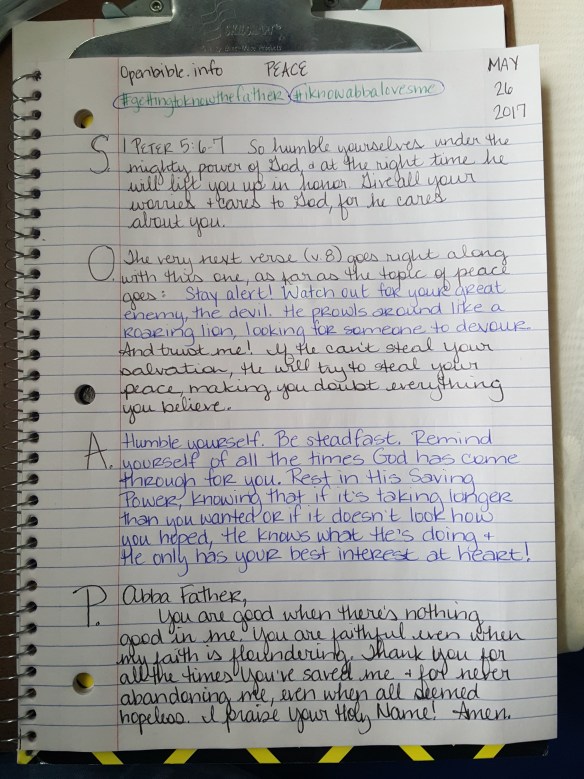 Openbible.info PEACE MAY
26
2017
#gettingtoknowthefather #iknowabbalovesme
S. 1 PETER 5:6-7 So humble yourselves under the
mighty power of God, & at the right time he
will lift you up in honor. Give all your
worries + cares to God, for he cares
about you.
O. The very next verse (v.8) goes right along
with this one, as far as the topic of peace
goes: Stay alert! Watch out for your great
enemy, the devil. He prowls around like a
roaring lion, looking for someone to devour.
And trust me! If he can't steal your
salvation, he will try to steal your
peace, making you doubt everything
you believe.
A. Humble yourself. Be steadfast. Remind
yourself of all the times God has come
through for you. Rest in His Saving
Power, knowing that if it's taking longer
than you wanted or if it doesn't look how
you hoped, He knows what He's doing +
He only has your best interest at heart!
P. Abba Father,
You are good when there's nothing
good in me. You are faithful even when
my faith is floundering. Thank You for
all the times You've saved me + for never
abandoning me, even when all seemed
hopeless. I praise Your Holy Name! Amen.